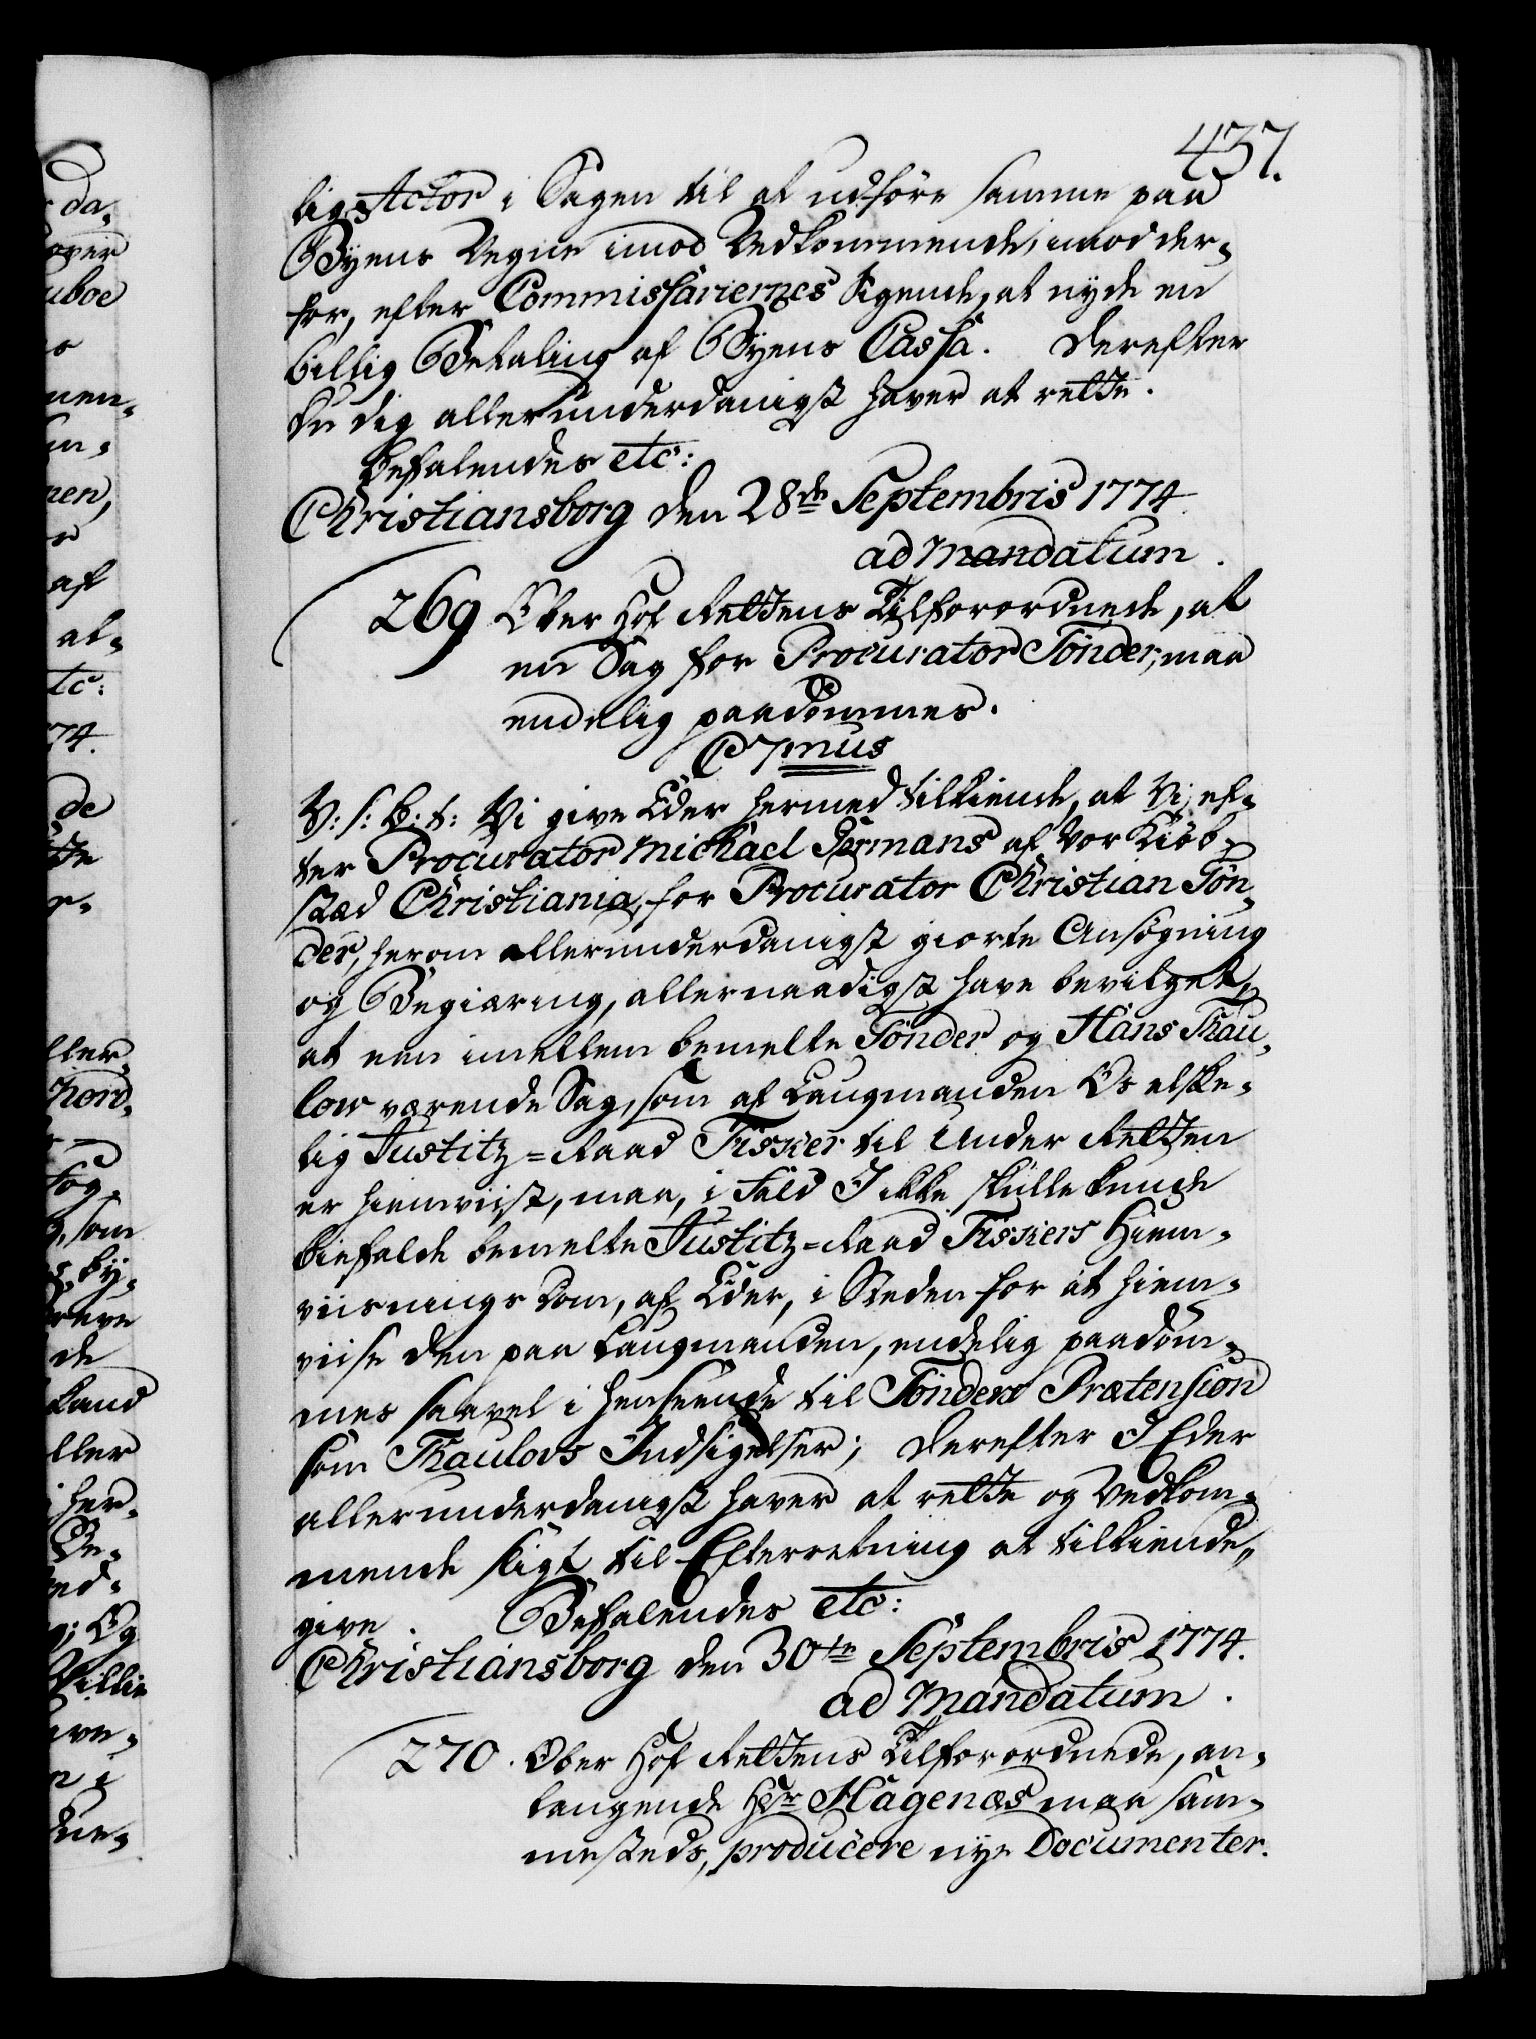 437.
lig Actor i Sagen til at udføre samme paa
Byens Vegne imod Vedkommende, imod der-
for, efter Commissariernes Kiende, at nyde en
billig Betaling af Byens Cassa. Derefter
du dig allerunderdanigst haver at rette.
Befalendes etc:
Christiansborg den 28de Septembris 1774
ad Mandatum.
269 Over Hof Rettens Tilforordnede, at
en Sag for Procurator Tönder, maa
endelig paadömmes.
C 7mus
V: S: B: t: Vi give Eder hermed tilkiende, at Vi, ef-
ter Procurator Michael Jermans af Vor Kiöb-
stæd Christiania, for Procurator Christian Tön-
der, herom allerunderdanigst giorte Ansögning
og Begiæring, allernaadigst have bevilget,
at een imellem bemelte Tönder og Hans Thau-
low værende Sag, som af Laugmanden Os elske-
lig Justitz-Raad Fisker til Under Retten
er hiemviist, maa, i Fald I ikke skulle kunde
biefalde bemelte Justitz-Raad Fiskers Hiem-
viisnings Dom, af Eder, i Steden for at hiem-
viise den paa Laugmanden, endelig paadöm-
mes saavel i henseende til Tönders Prætension
som Thaulovs Indsigelser; Derefter I Eder
allerunderdanigst haver at rette og Vedkom-
mende sligt til Efterretning at tilkiende-
give. Befalendes etc:
Christiansborg den 30te Septembris 1774.
ad Mandatum.
270. Ober Hof Rettens Tilforordnede, an-
langende Hr Hagenæs maa sam-
mesteds, producere nye Documenter.